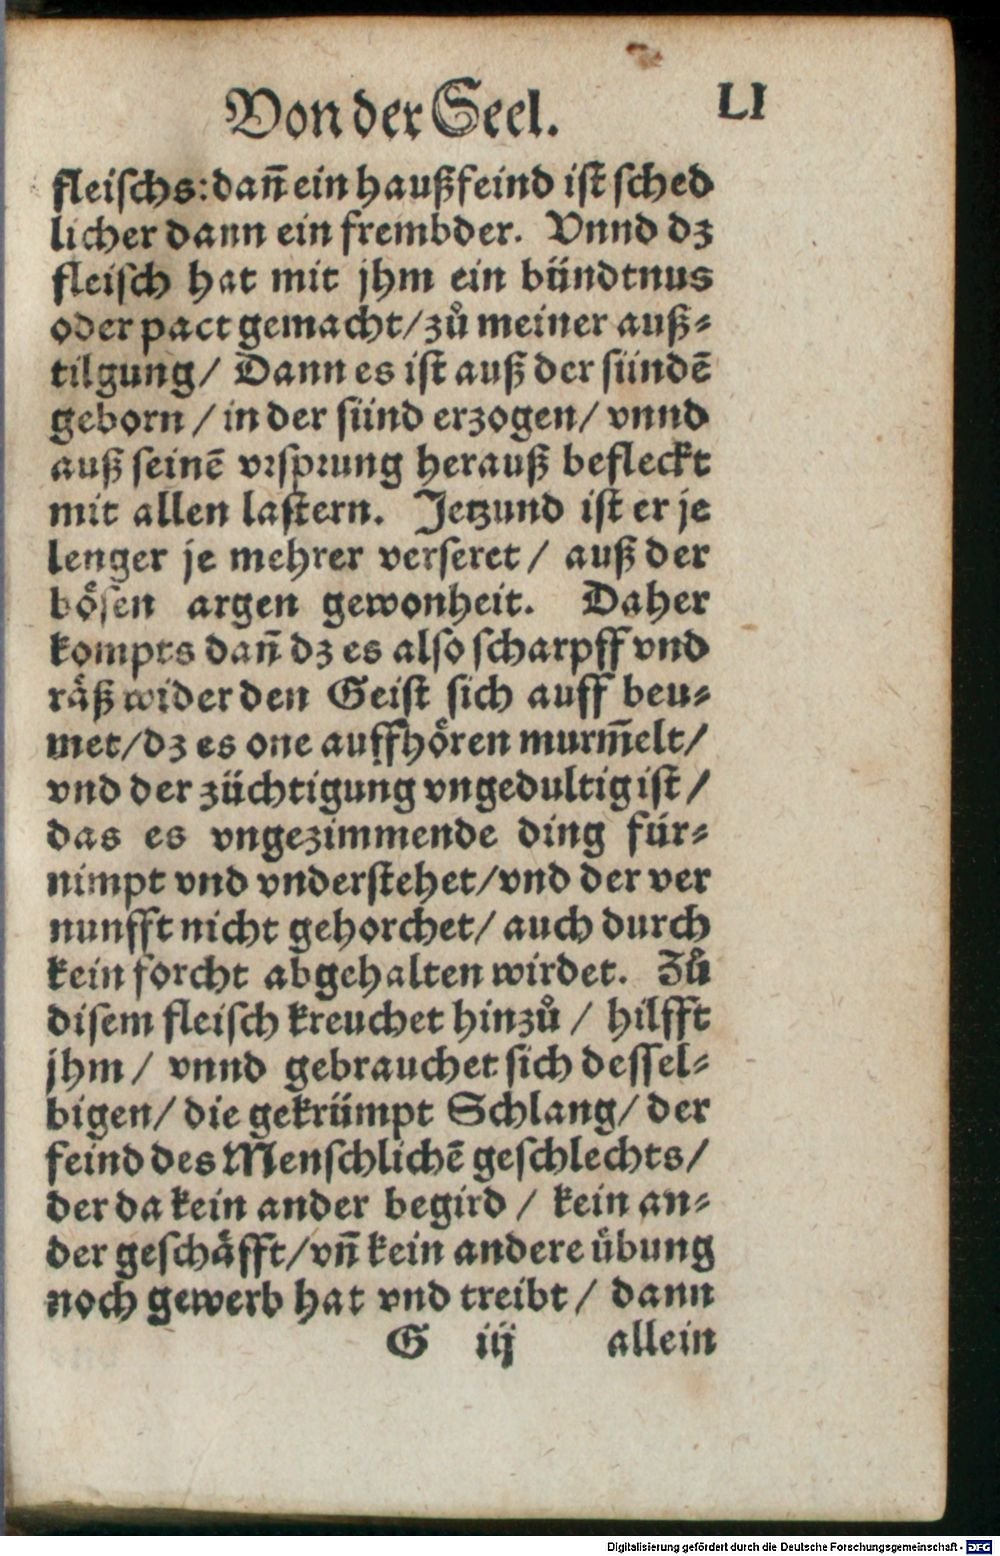 Von der Seel. LI
fleischs: dañ ein haußfeind ist sched
licher dann ein frembder. Vnnd dz
fleisch hat mit jhm ein bündtnus
oder pact gemacht/ zů meiner auß-
tilgung/ Dann es ist auß der sündē
geborn / in der sünd erzogen/ vnnd
auß seinē vrsprung herauß befleckt
mit allen lastern. Jetzund ist er je
lenger je mehrer verseret / auß der
bösen argen gewonheit. Daher
kompts dañ dz es also scharpff vnd
räß wider den Geist sich auff beu-
met/ dz es one auffhören murm̃elt/
vnd der züchtigung vngedultig ist /
das es vngezimmende ding für-
nimpt vnd vnderstehet/ vnd der ver
nunfft nicht gehorchet/ auch durch
kein forcht abgehalten wirdet. Zů
disem fleisch kreuchet hinzů / hilfft
jhm / vnnd gebrauchet sich dessel-
bigen/ die gekrümpt Schlang/ der
feind des Menschlichē geschlechts/
der da kein ander begird / kein an-
der geschäfft/ vñ kein andere übung
noch gewerb hat vnd treibt / dann
G iij allein
Digitalisierung gefördert durch die Deutsche Forschungsgemeinschaft - DFG